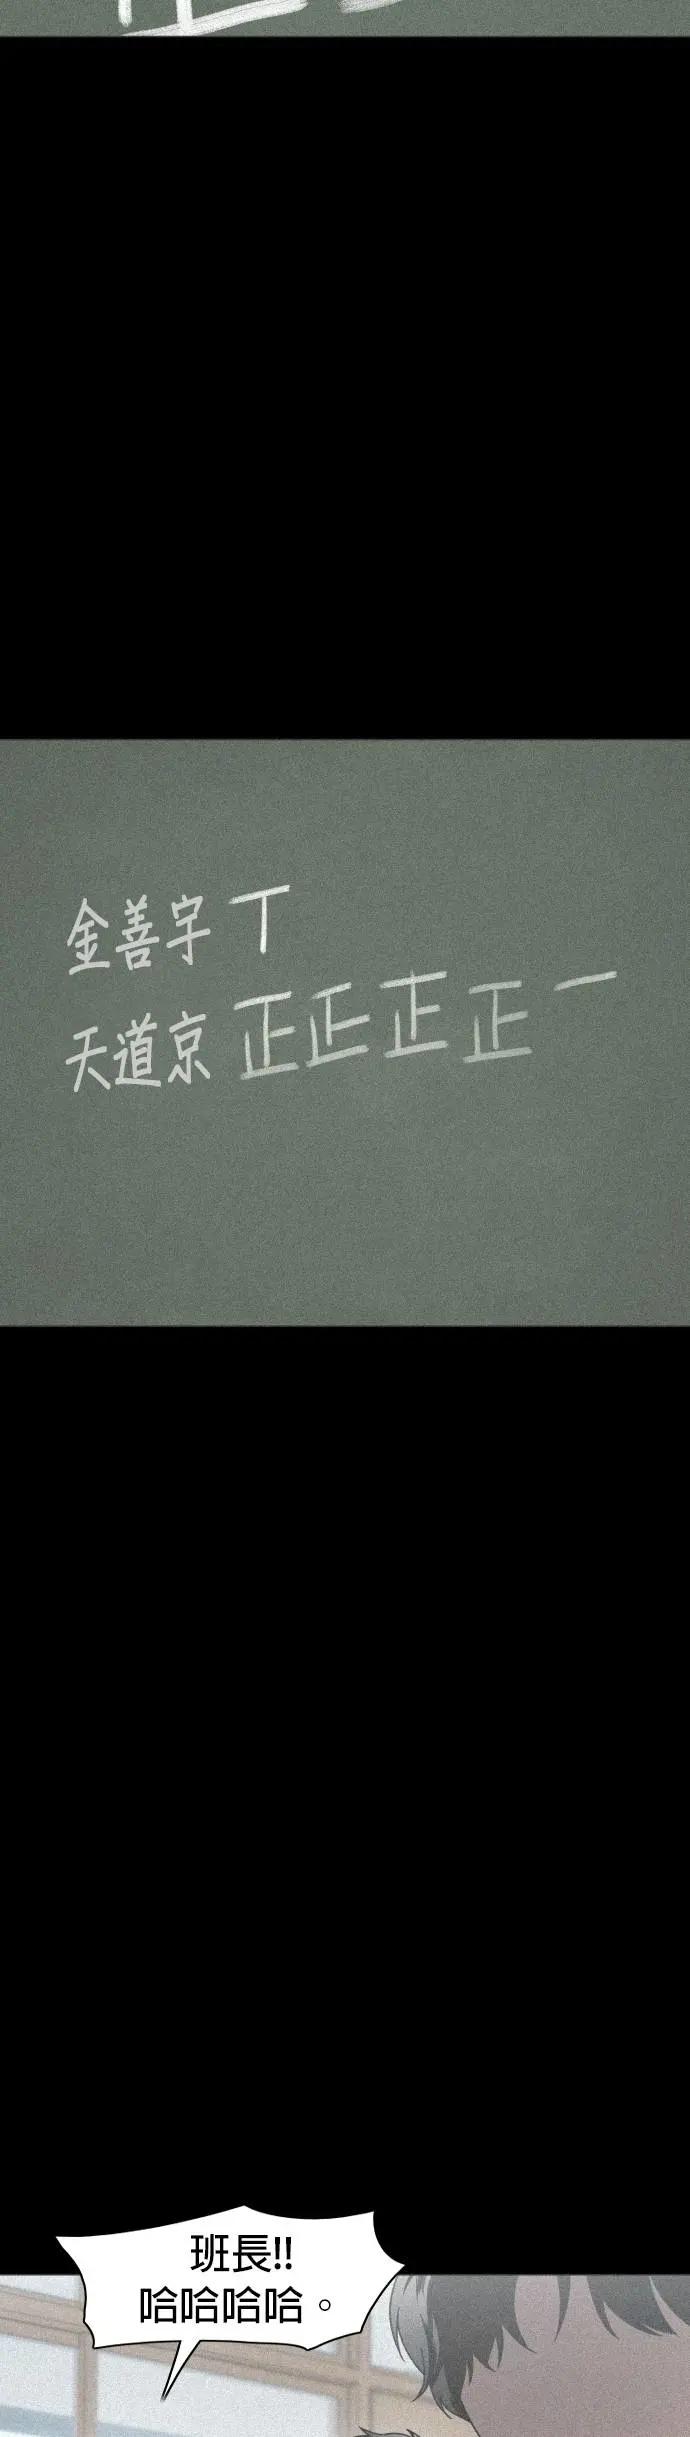 正正
金善宇 丅
天道京 正正正正一
班長!!
哈哈哈哈。